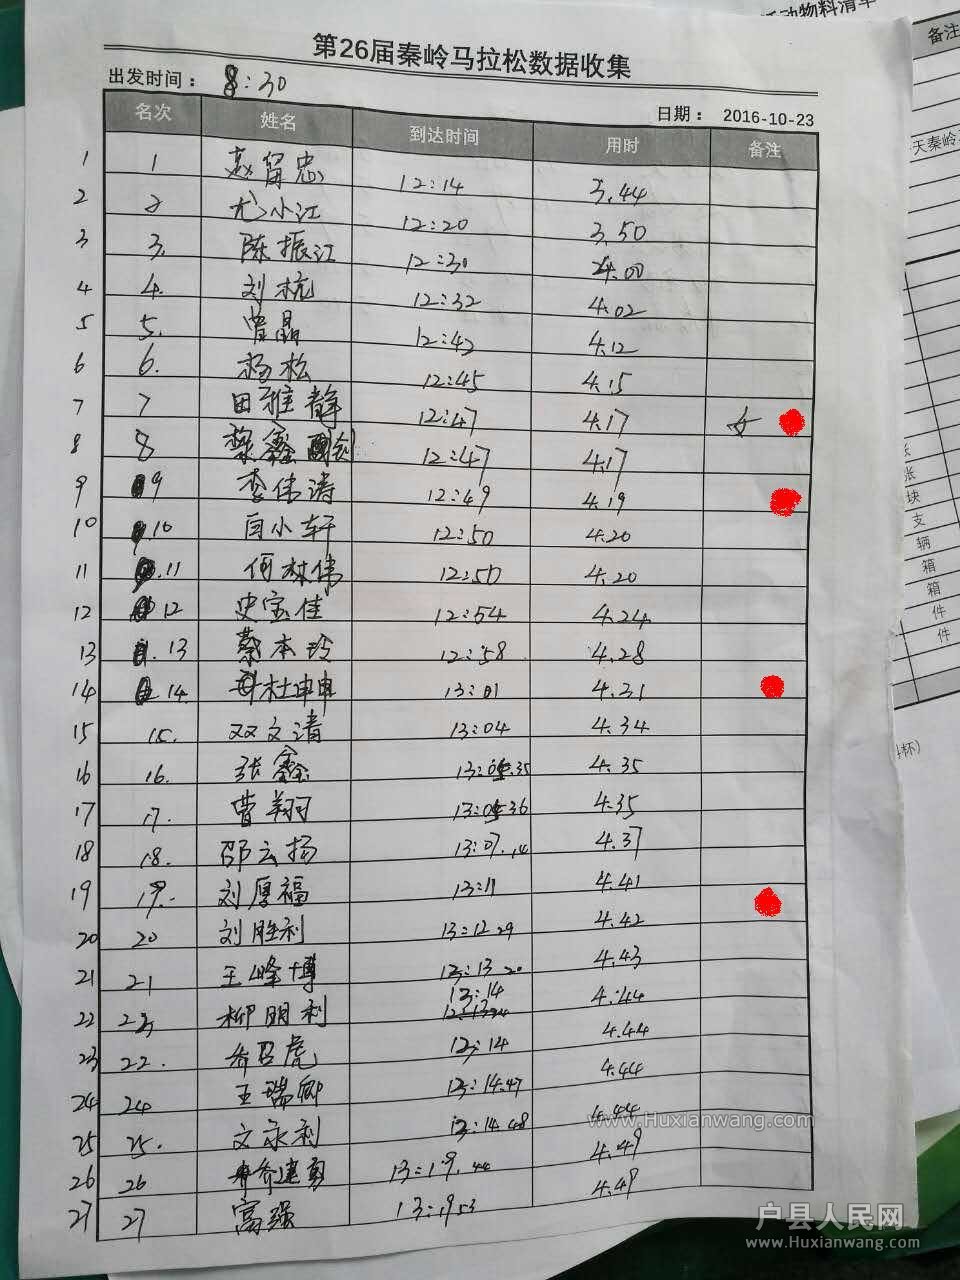 动物料清单
备注
第26届秦岭马拉松数据收集
出发时间： 8:30
日期： 2016-10-23
名次 姓名 到达时间 用时 备注
1 1 赵留忠 12:14 3.44
2 2 尤小江 12:20 3.50
3 3. 陈振江 12:30 4.00
4 4. 刘杭 12:32 4.02
5 5. 曾晶 12:42 4.12
6 6. 杨松 12:45 4.15
7 7 田雅静 12:47 4.17 女
8 8 鑫 12:47 4.17
9 9 李伟涛 12:49 4.19
10 10 闫小轩 12:50 4.20
11 11 何林伟 12:50 4.20
12 12 史宝佳 12:54 4.24
13 13 蔡本玲 12:58 4.28
14 14. 杜坤申 13:01 4.31
15 15. 双文清 13:04 4.34
16 16. 张鑫 13:05.35 4.35
17 17. 曹翔 13:05 36 4.35
18 18. 邵云扬 13:07.14 4.37
19 19. 刘厚福 13:11 4.41
20 20 刘胜利 13:12 29 4.42
21 21 王峰博 13:13 20 4.43
22 柳明利 13:14 4.44
23 22. 乔召虎 13:14 4.44
24 24 王瑞卿 13:14.47 4.44
25 25. 文永利 13:14 48 4.44
26 26 乔建勇 13:19.44 4.49
27 27 富强 13:19 53 4.49
天秦岭
张
块
支
辆
箱
箱
件
件
杯）
www.Huxianwang.com
户县人民网
www.Huxianwang.com